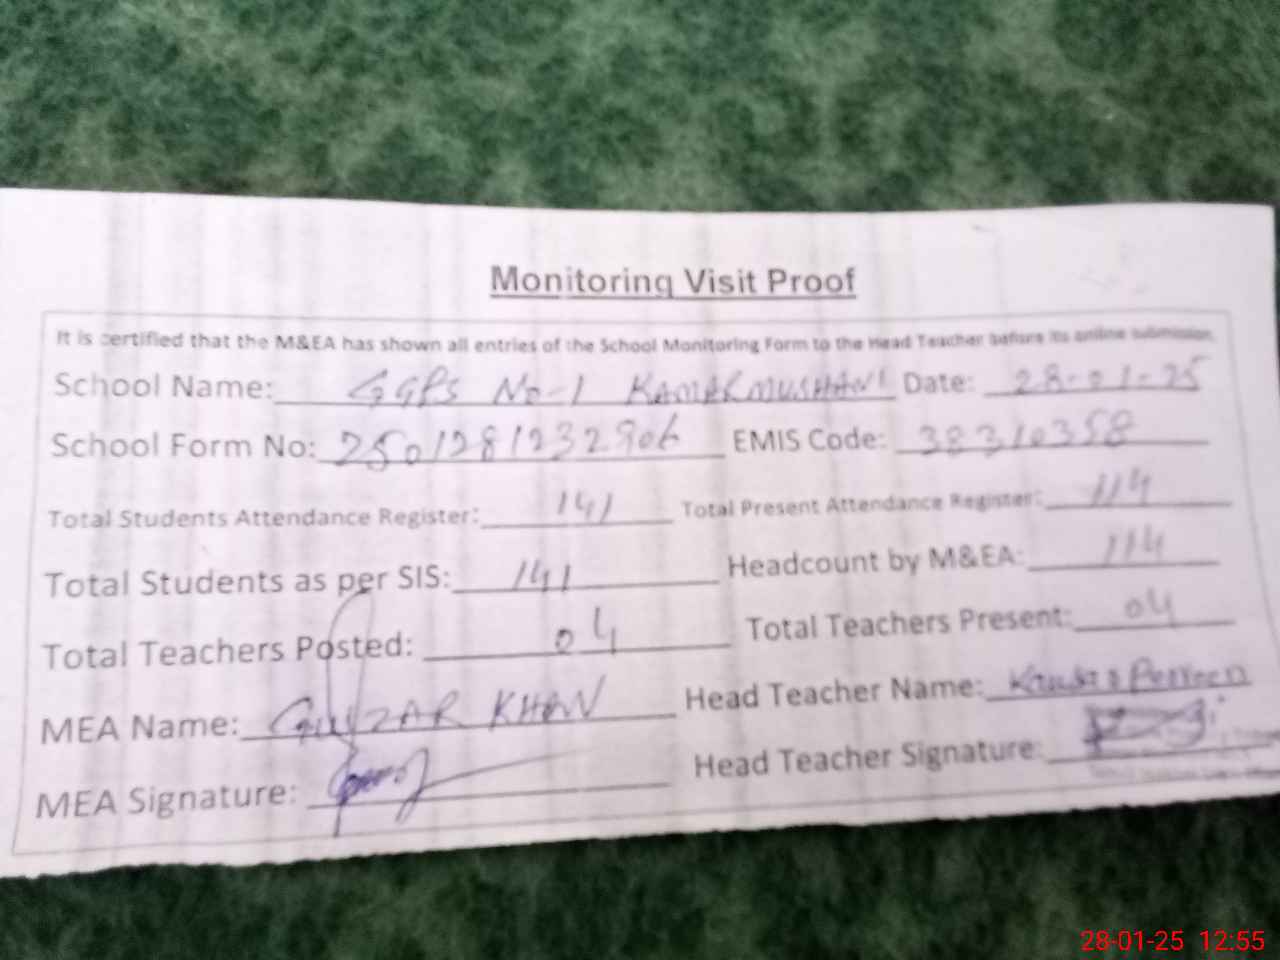 Monitoring Visit Proof
It is certified that the M&EA has shown all entries of the School Monitoring Form to the Head Teacher before its online submission.
School Name: GGPS No-1 KAMARMUSHANI Date: 28-01-25
School Form No: 2501281232906 EMIS Code: 38310358
Total Students Attendance Register: 141 Total Present Attendance Register: 114
Total Students as per SIS: 141 Headcount by M&EA: 114
Total Teachers Posted: 04 Total Teachers Present: 04
MEA Name: GULZAR KHAN Head Teacher Name: Perveen
MEA Signature: Head Teacher Signature:
28-01-25 12:55